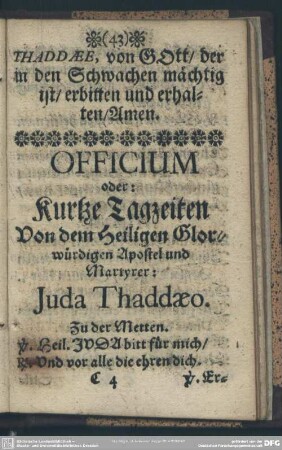 (43)
THADDÆE, von GOtt/ der
in den Schwachen mächtig
ist/ erbitten und erhal-
ten/Amen.
OFFICIUM
oder:
Kurtze Tagzeiten
Von dem Heiligen Glor-
würdigen Apostel und
Martyrer:
Juda Thaddæo.
Zu der Metten.
℣. Heil. JVDA bitt für mich/
℟. Vnd vor alle die ehren dich.
C 4 ℣. Er-
DFG